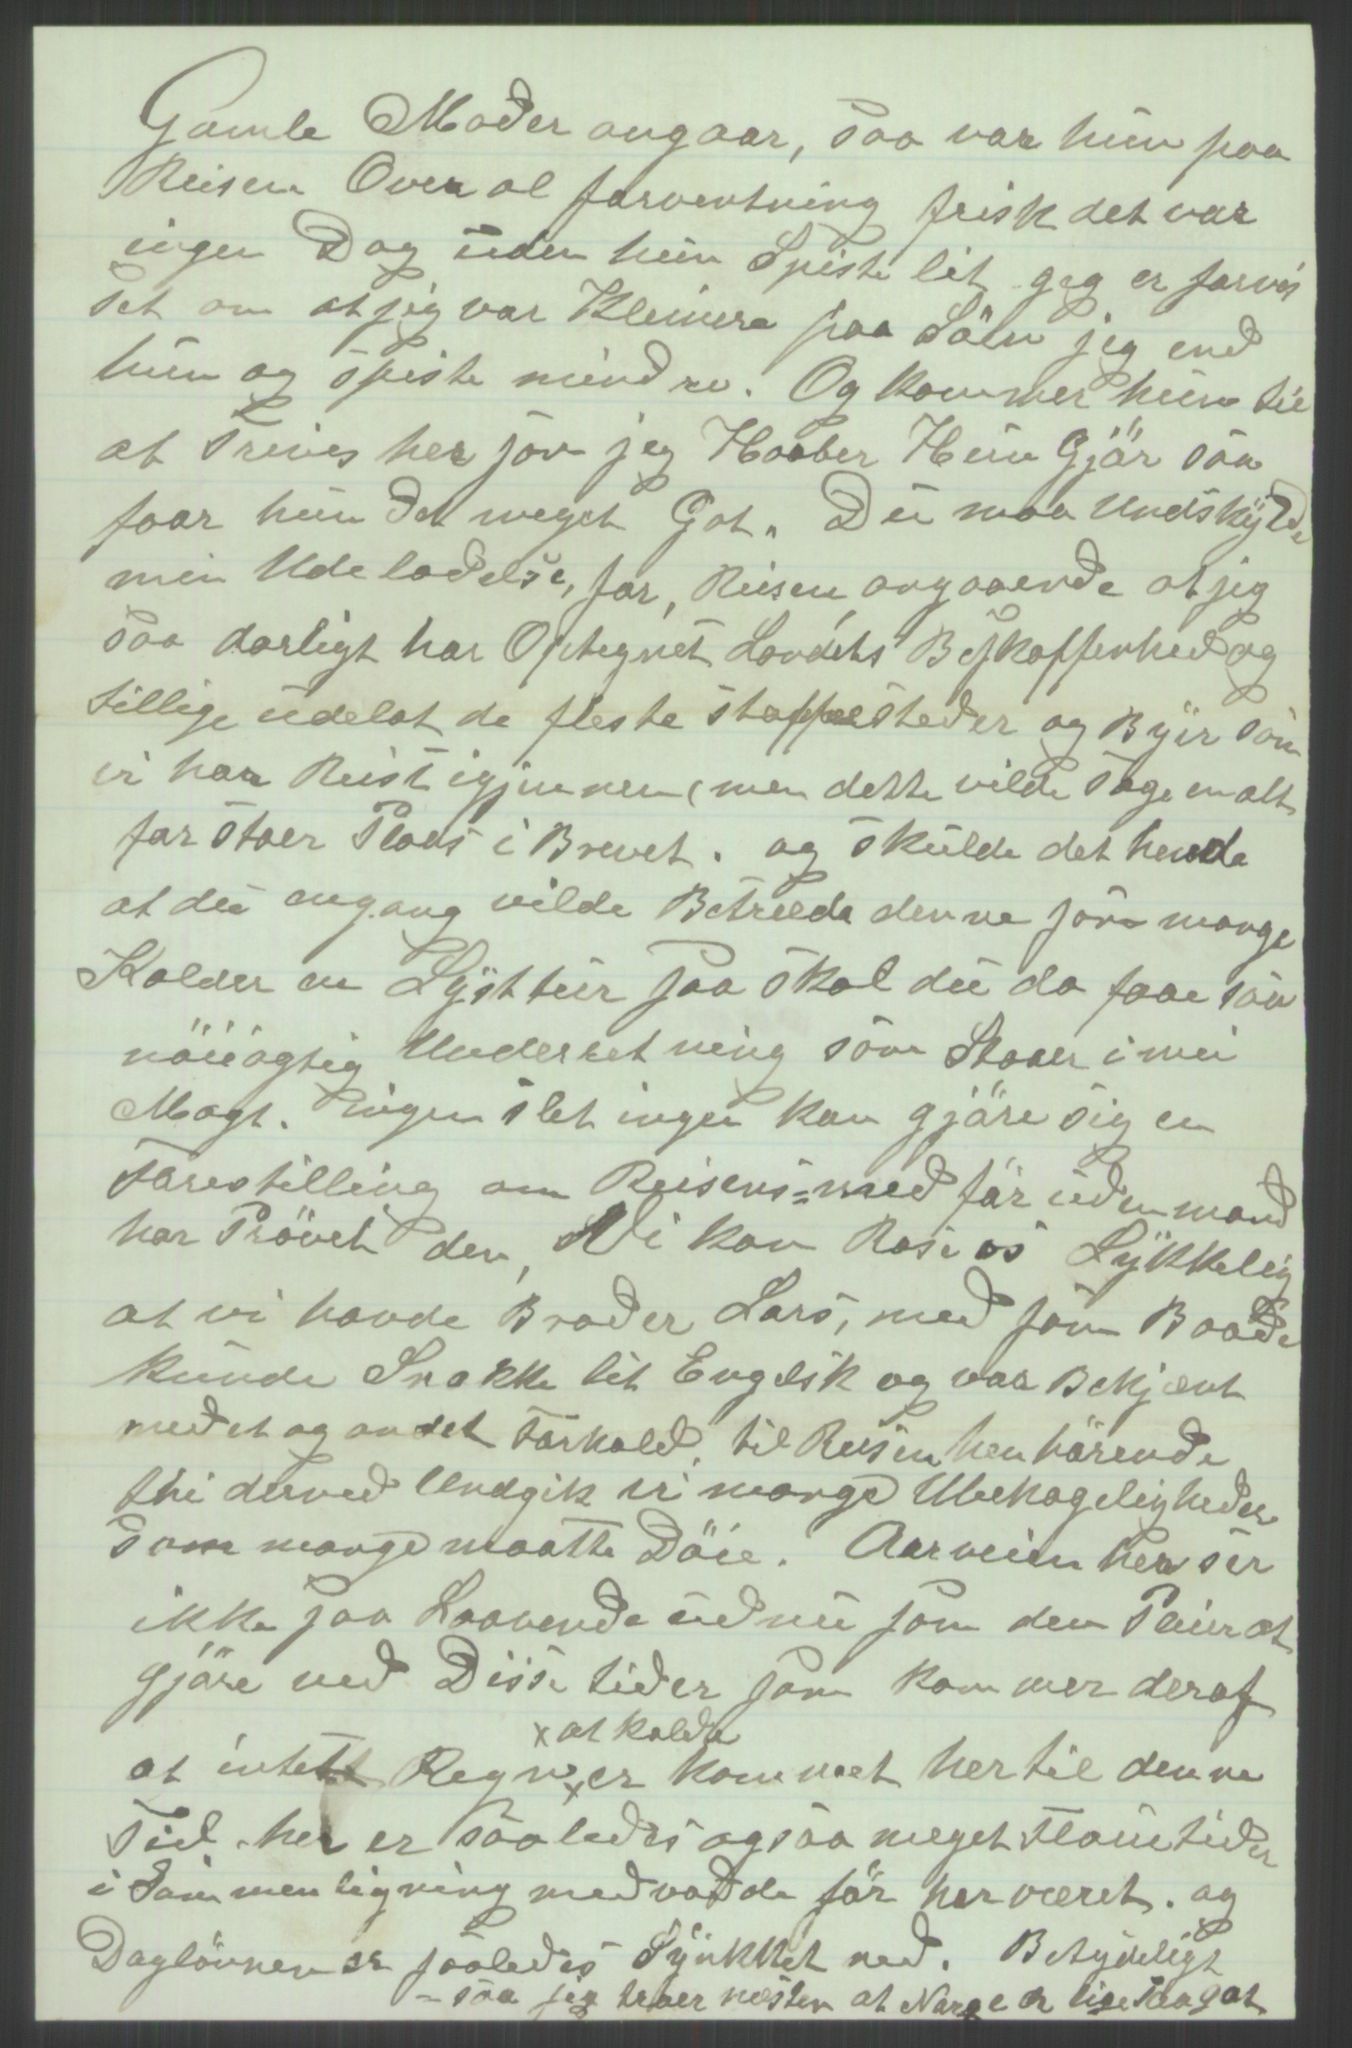 Gamle Moder angaar, saa var hun paa
Reisen Over al forventning frisk det var
ingen Dag uden hun Spiste lit jeg er forvis
set om at jeg var Kleinere paa Söen jeg end
hun og spiste mindre. Og kommer hun til
at Trives her som jeg Haaber Hun Gjör saa
faar hun det meget Got. Du maa Undskylde
min Udeladelse, for, Reisen angaaende at jeg
saa darligt har Optegnet Landets Beskaffenhed og
tillige udelat de fleste stoppesteder og Byer som
vi har Reist igjennem, men dette vilde Tage en alt
for stoer Plads i Brevet. og skulde det hende
at du engang vilde Betræde denne som mange
Kalder en Lysttur saa skal du da faae saa
nöiiagtig Underretning som Staaer i min
Magt. Ingen slet ingen kan gjöre sig en
Forestilling om Reisens= med för uden mand
har Prövet den, Vi kan Rose os Lykkelig
at vi havde Broder Lars, med som Baade
kunde Snakke lit Engelsk og var Bekjent
med et og andet Forhold, til Reisen henhörende
thi derved Undgik vi mange Ubehageligheder
som mange maatte Döie. Aarveien her ser
ikke saa Lovende ud nu som den Pleier at
gjöre ved Disse tider som kommer deraf
x at kalde
at intett Regn x er kommet her til denne
Tid. her er saaledes ogsaa meget Flaue tider
i Sammenligning med vad de för her været. og
Daglönnen er saaledes Synkket ned. Betydeligt
- saa jeg troer næsten at Norge er lige saa got